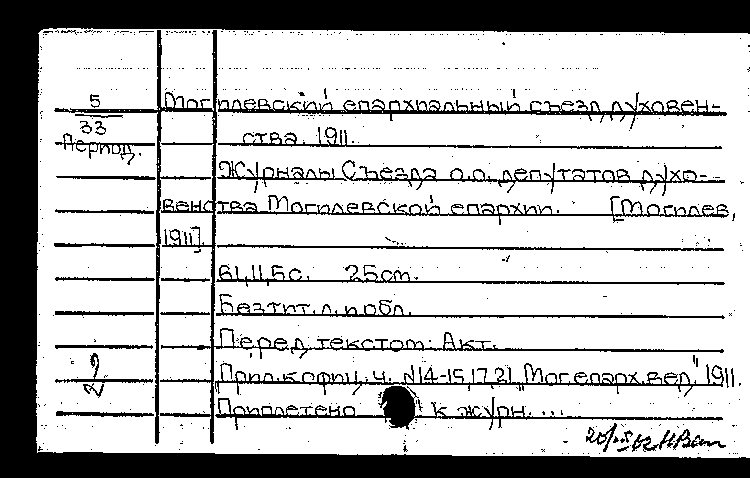 5
Могилевский епархиальный съезд духовен-
33
ства. 1911.
Период.
Журналы Съезда о.о. депутатов духо-
венства Могилевской епархии. [Могилев,
1911].
61,11,5с. 25см.
Без тит. л. и обл.
Перед текстом: Акт.
Прил. к офиц. ч. №14-15,17,21 „Мог. епарх. вед." 1911.
Приплетено к журн. ...